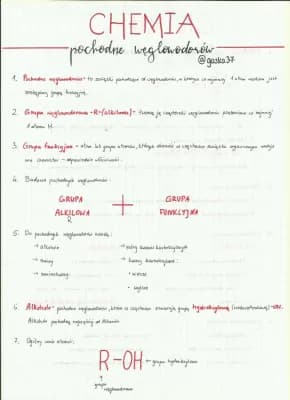 CHEMIA
pochodne węglowodorów
@gaska37
1. Pochodne węglowodorów - to związki pochodzące od węglowodorów, w których co najmniej 1 atom wodoru jest
zastąpiony grupą funkcyjną.
2. Grupa węglowodorowa -R- (alkilowa) - tworzą ją cząsteczki węglowodorów pozbawione co najmniej
1 atomu H.
3. Grupa funkcyjna - atom lub grupa atomów, która obecność w cząsteczce związku organicznego nadaje
mu charakter - odpowiednie właściwości.
4. Budowa pochodnych węglowodorów:
GRUPA + GRUPA
ALKILOWA FUNKCYJNA
R
5. Do pochodnych węglowodorów należą:
→ alkohole → estry kwasów karboksylowych
→ aminy → kwasy karboksylowe:
→ aminokwasy • niższe
• wyższe
6. Alkohole - pochodne węglowodorów, które w cząsteczkach zawierają grupę hydroksylową -OH.
Alkohole pochodzą najczęściej od alkanów.
7. Ogólny wzór alkoholi:
R-OH ← grupa hydroksylowa
↑
grupa
węglowodorowa